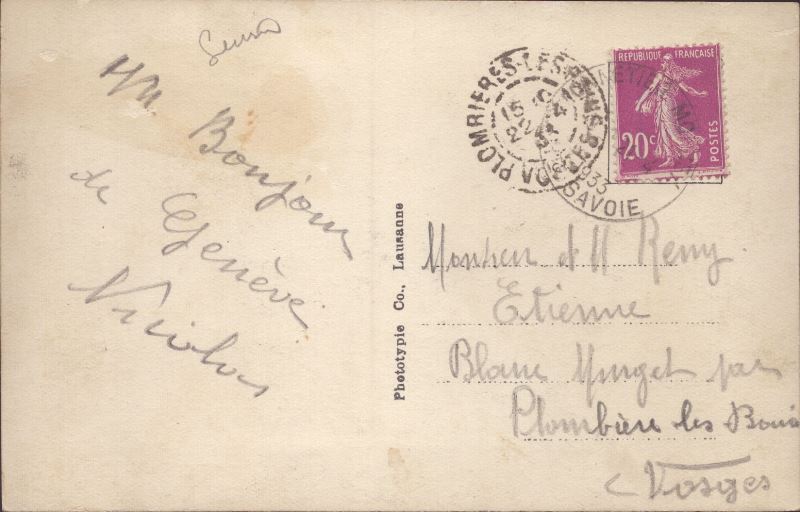 Un Bonjour
de Genève
Nicolas
Phototypie Co., Lausanne
PLOMBIERES-LES-BAINS
VOSGES
15
4
1933
SAVOIE
REPUBLIQUE FRANÇAISE
20c
POSTES
Monsieur et M Remy
Etienne
Blanc Murget par
Plombière les Bains
Vosges